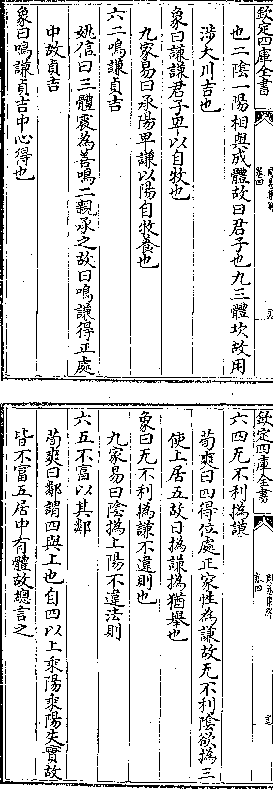 欽定四庫全書
也二陰一陽相與成體故曰君子也九三體坎故用
涉大川吉也
象曰謙謙君子卑以自牧也
九家易曰承陽卑謙以陽自牧養也
六二鳴謙貞吉
姚信曰三體震為善鳴二親承之故曰鳴謙得正處
中故貞吉
象曰鳴謙貞吉中心得也
欽定四庫全書
六四无不利撝謙
荀爽曰四得位處正家性為謙故无不利陰欲撝三
使上居五故曰撝謙撝猶舉也
象曰无不利撝謙不違則也
九家易曰陰撝上陽不違法則
六五不富以其鄰
荀爽曰鄰謂四與上也自四以上乘陽乘陽失實故
皆不富五居中有體故總言之